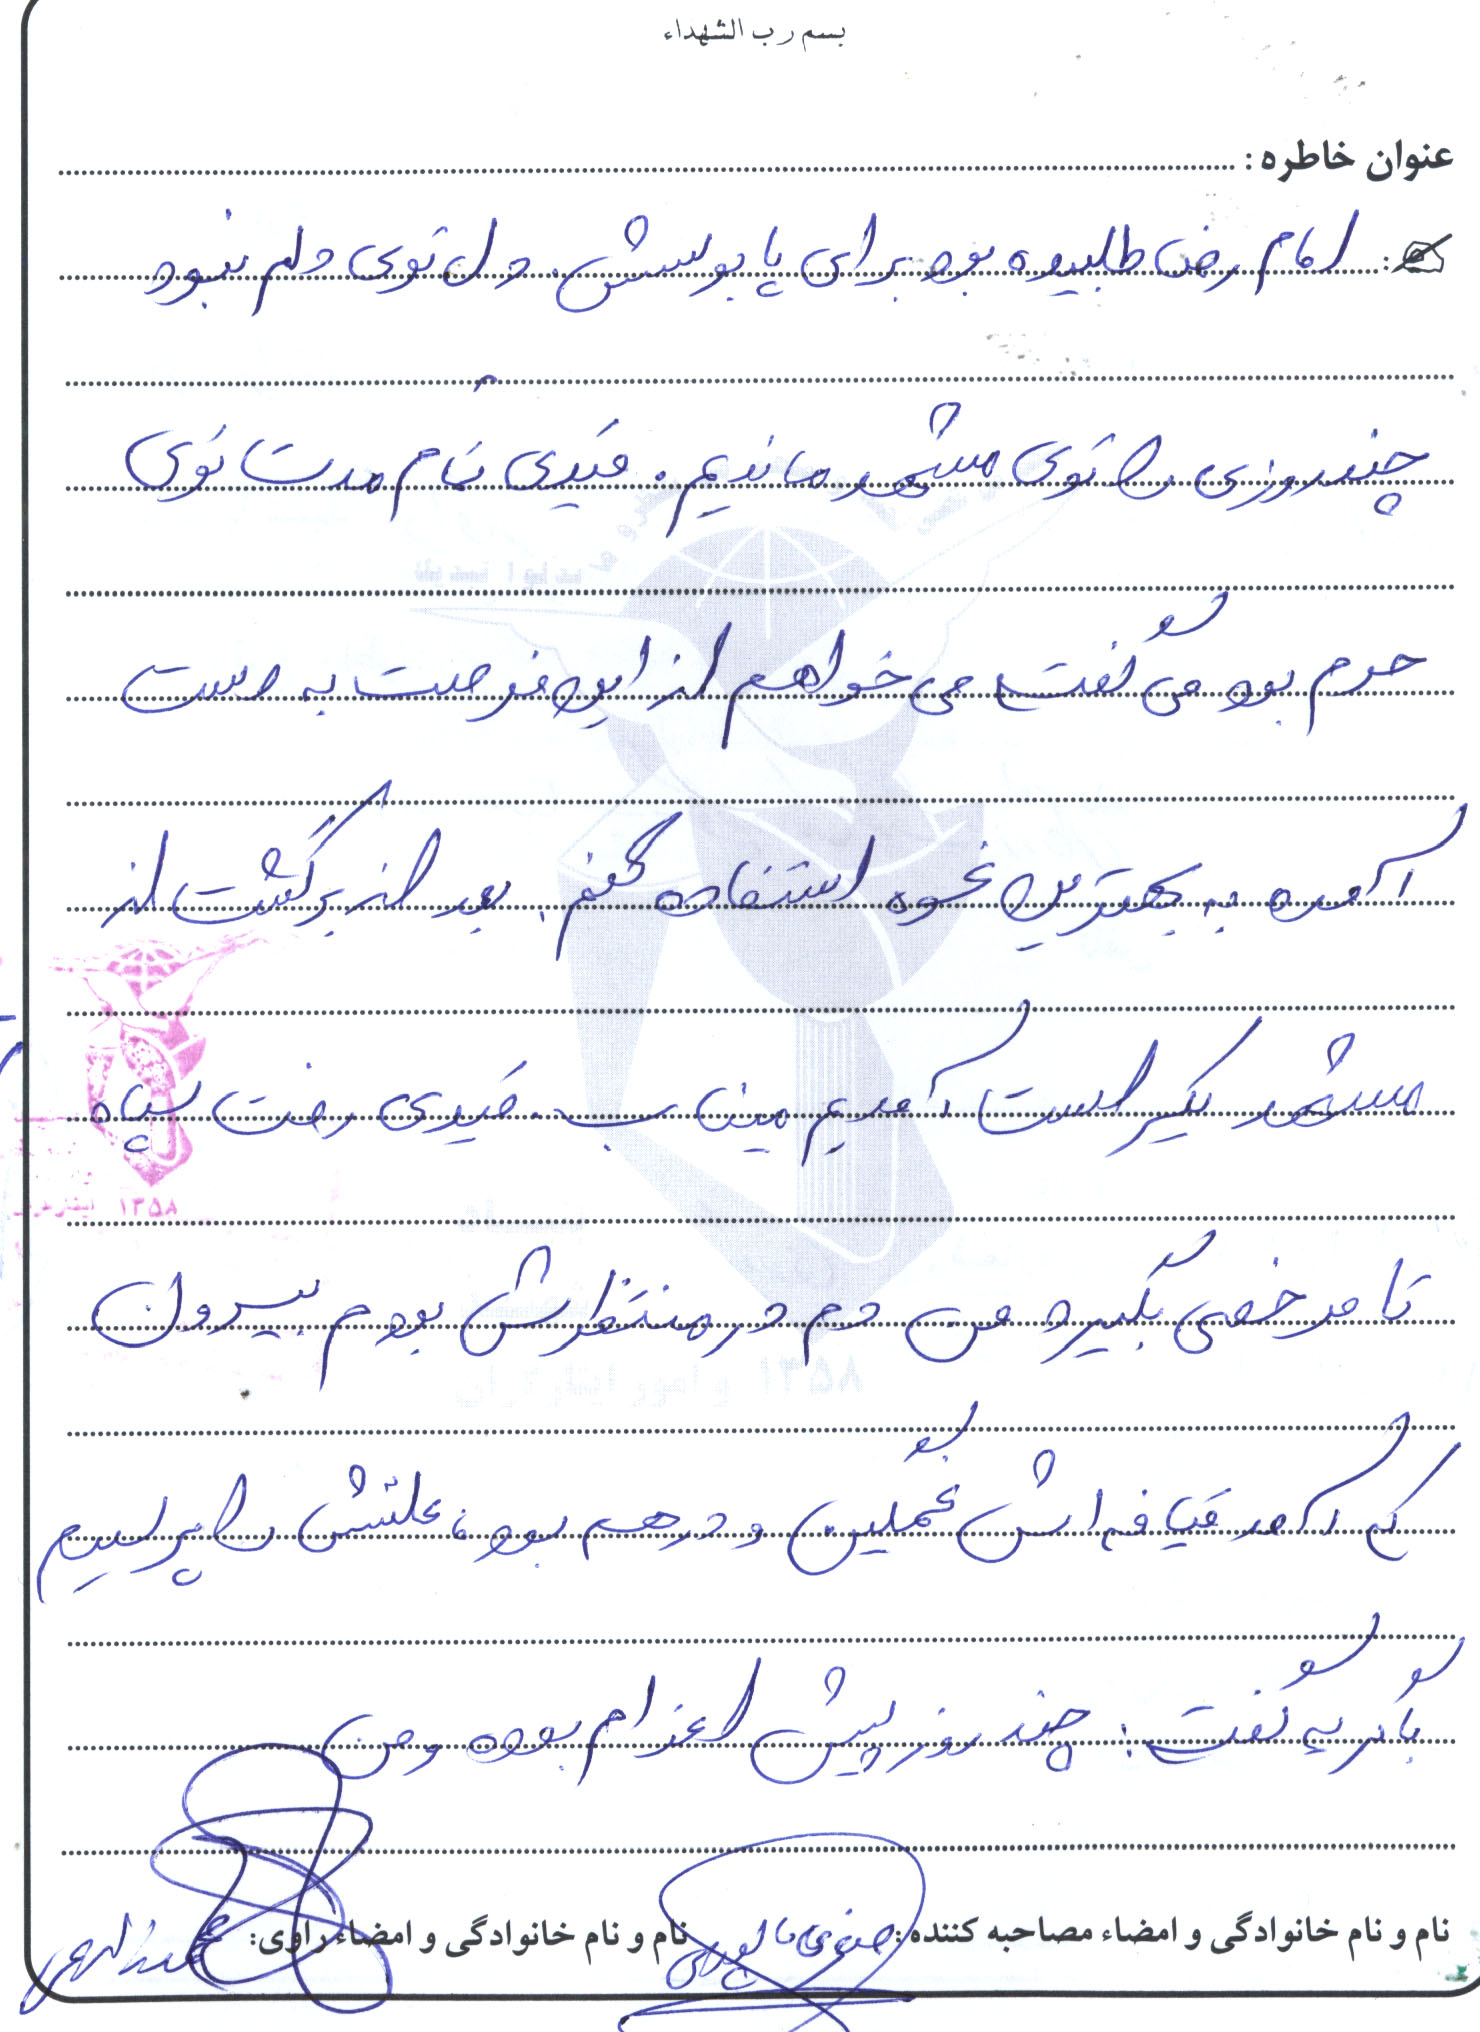 بسم رب الشهداء
عنوان خاطره :
امام رضا طلبیده بود برای پا بوسش. دل توی دلم نبود
چند روزی را توی مشهد ماندیم. قیدی تمام مدت توی
حرم بود می گفت می خواهم از این فرصت به دست
آمده به بهترین نحوه استفاده کنم. بعد از برگشت از
مشهد یکراست آمدیم میناب. قیدی رفت سپاه
تا مرخصی بگیره من دم در منتظرش بودم بیرون
که آمد قیافه اش غمگین و درهم بود، علتش را پرسیدم
با گریه گفت: چند روز پیش اعزام بوده و من
نام و نام خانوادگی و امضاء مصاحبه کننده: نام و نام خانوادگی و امضاء راوی:
۱۳۵۸